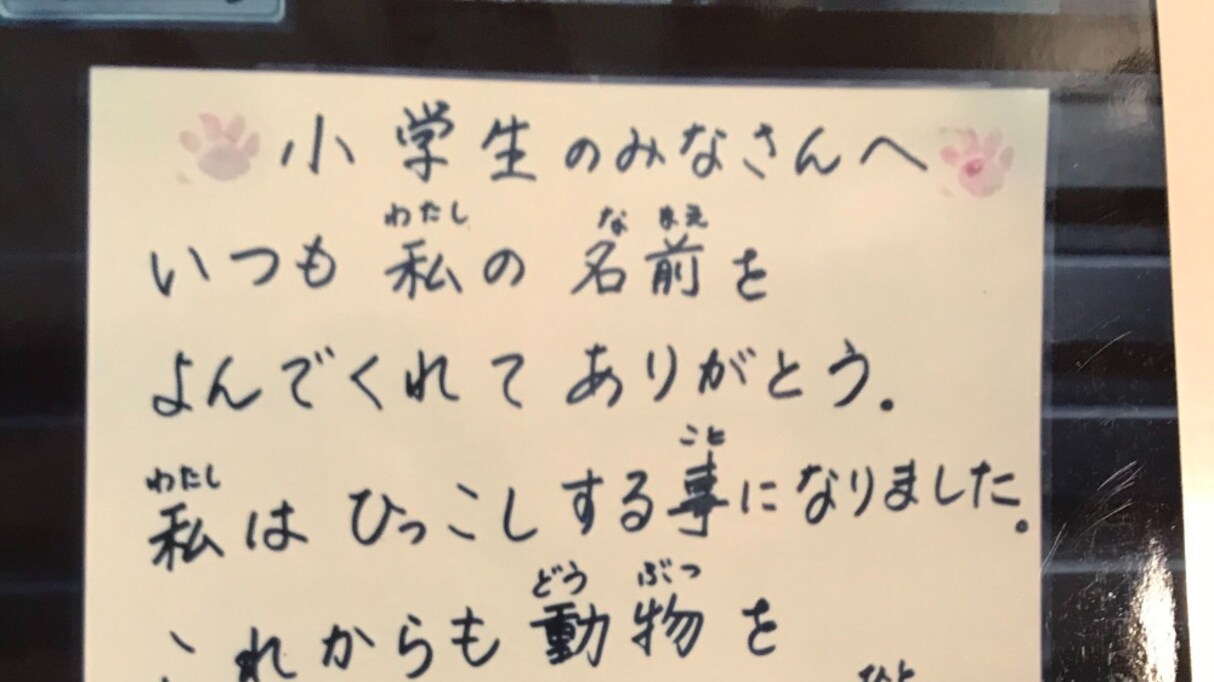 小学生のみなさんへ
わたし なまえ
いつも私の名前を
よんでくれてありがとう。
わたし こと
私はひっこしする事になりました。
どう ぶつ
これからも動物を